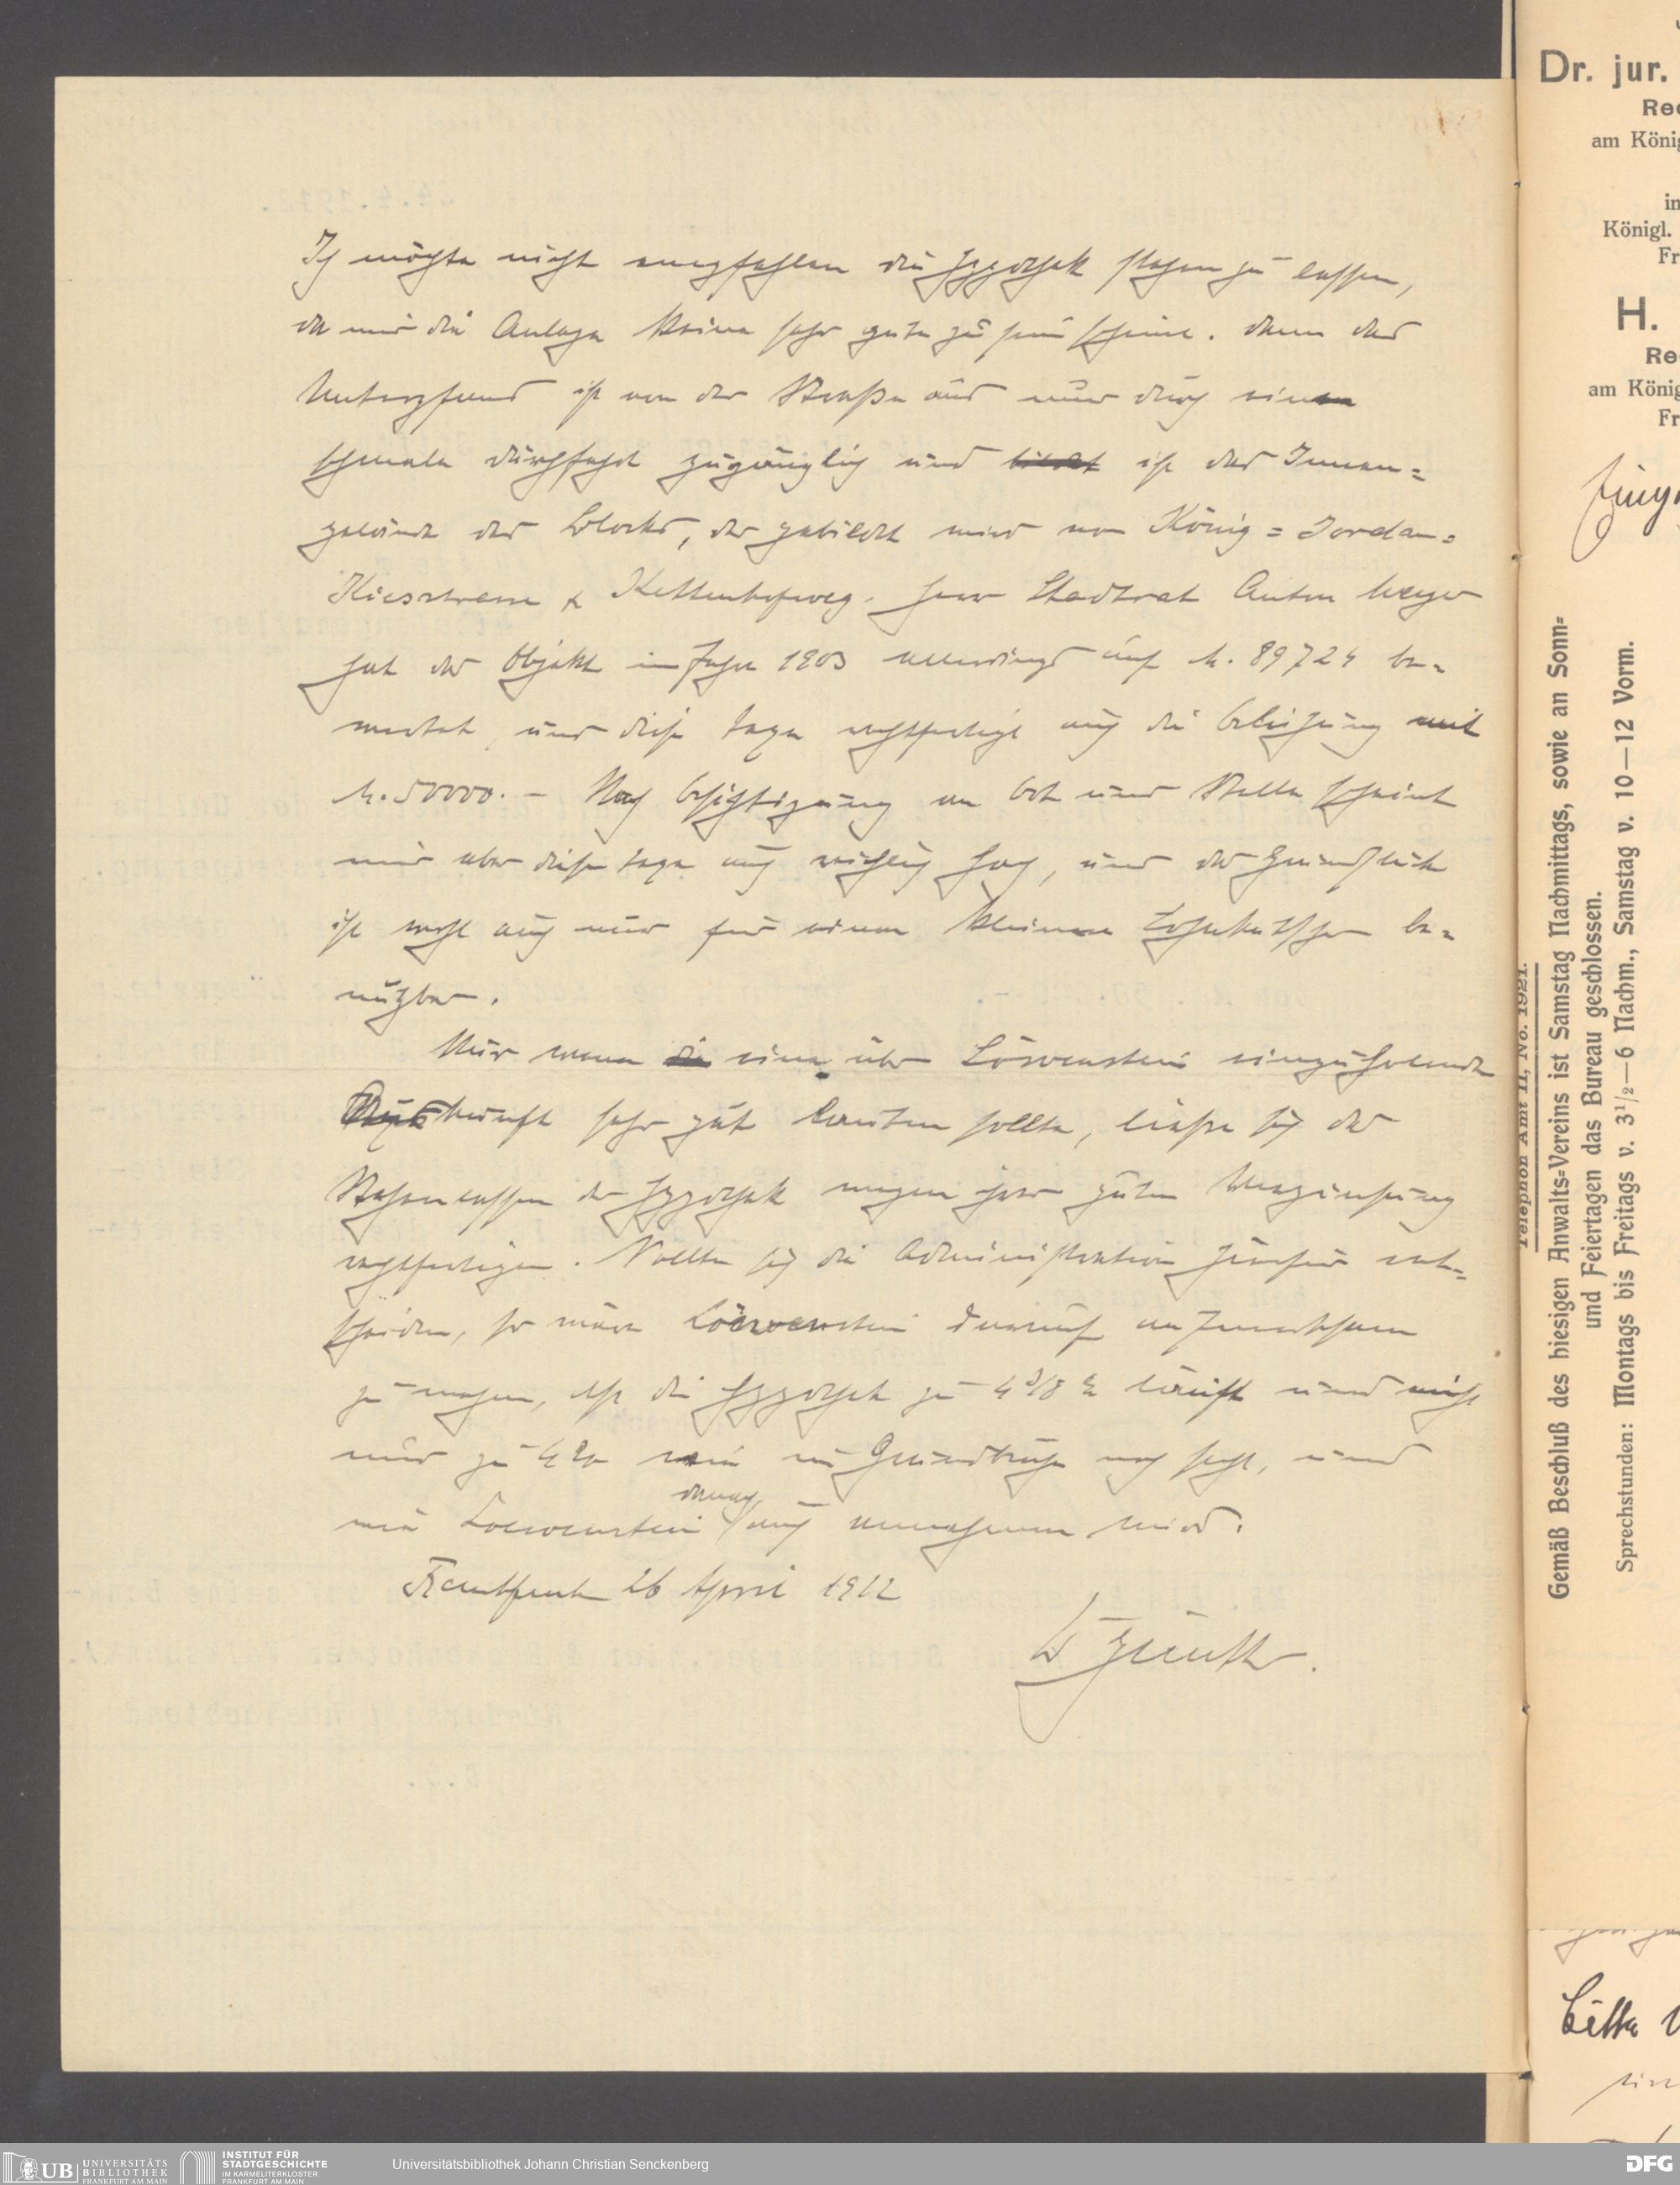 Ich möchte nicht empfehlen die Hypothek stehen zu lassen,
da mir die Anlage keine sehr gute zu sein scheint. Denn das
Unterpfand ist von der Straße aus nur durch eine
schmale Durchfahrt zugänglich und bildet ist das Innen=
gelände des Blocks, der gebildet wird von König= Jordan=
Kiesstrasse & Kettenhofweg. Herr Stadtrat Anton Meyer
hat das Objekt im Jahre 1903 allerdings auf M. 89724 be=
wertet, und diese Taxe rechtfertigt auch die Beleihung mit
M. 50000.- Nach Besichtigung an Ort und Stelle scheint
mir aber diese Taxe auch reichlich hoch, und das Grundstück
ist wohl auch nur für einen kleinen Lohnkutscher be=
nützbar.
Nur wenn die eine über Löwenstein einzuholende
Auskunft sehr gut lauten sollte, ließe sich das
Stehenlassen der Hypothek wegen ihrer guten Verzinsung
rechtfertigen. Sollte sich die Administration hierfür ent=
scheiden, so wäre Löwenstein darauf aufmerksam
zu machen, daß die Hypothek zu 4 3/8 % läuft und nicht
nur zu 4% wie im Grundbuche noch steht, und
wie Loewenstein danach auch annehmen wird.
Frankfurt 26 April 1912
Dr. jur.
am König
in
Königl.
H.
am König
Gemäß Beschluß des hiesigen Anwalts-Vereins ist Samstag Nachmittags, sowie an Sonn=
und Feiertagen das Bureau geschlossen.
Sprechstunden: Montags bis Freitags v. 3½—6 Nachm., Samstag v. 10—12 Vorm.
Telephon Amt II, No. 1921.
Bitte
UB UNIVERSITÄTS
BIBLIOTHEK
FRANKFURT AM MAIN
INSTITUT FÜR
STADTGESCHICHTE
IM KARMELITERKLOSTER
FRANKFURT AM MAIN
Universitätsbibliothek Johann Christian Senckenberg
DFG